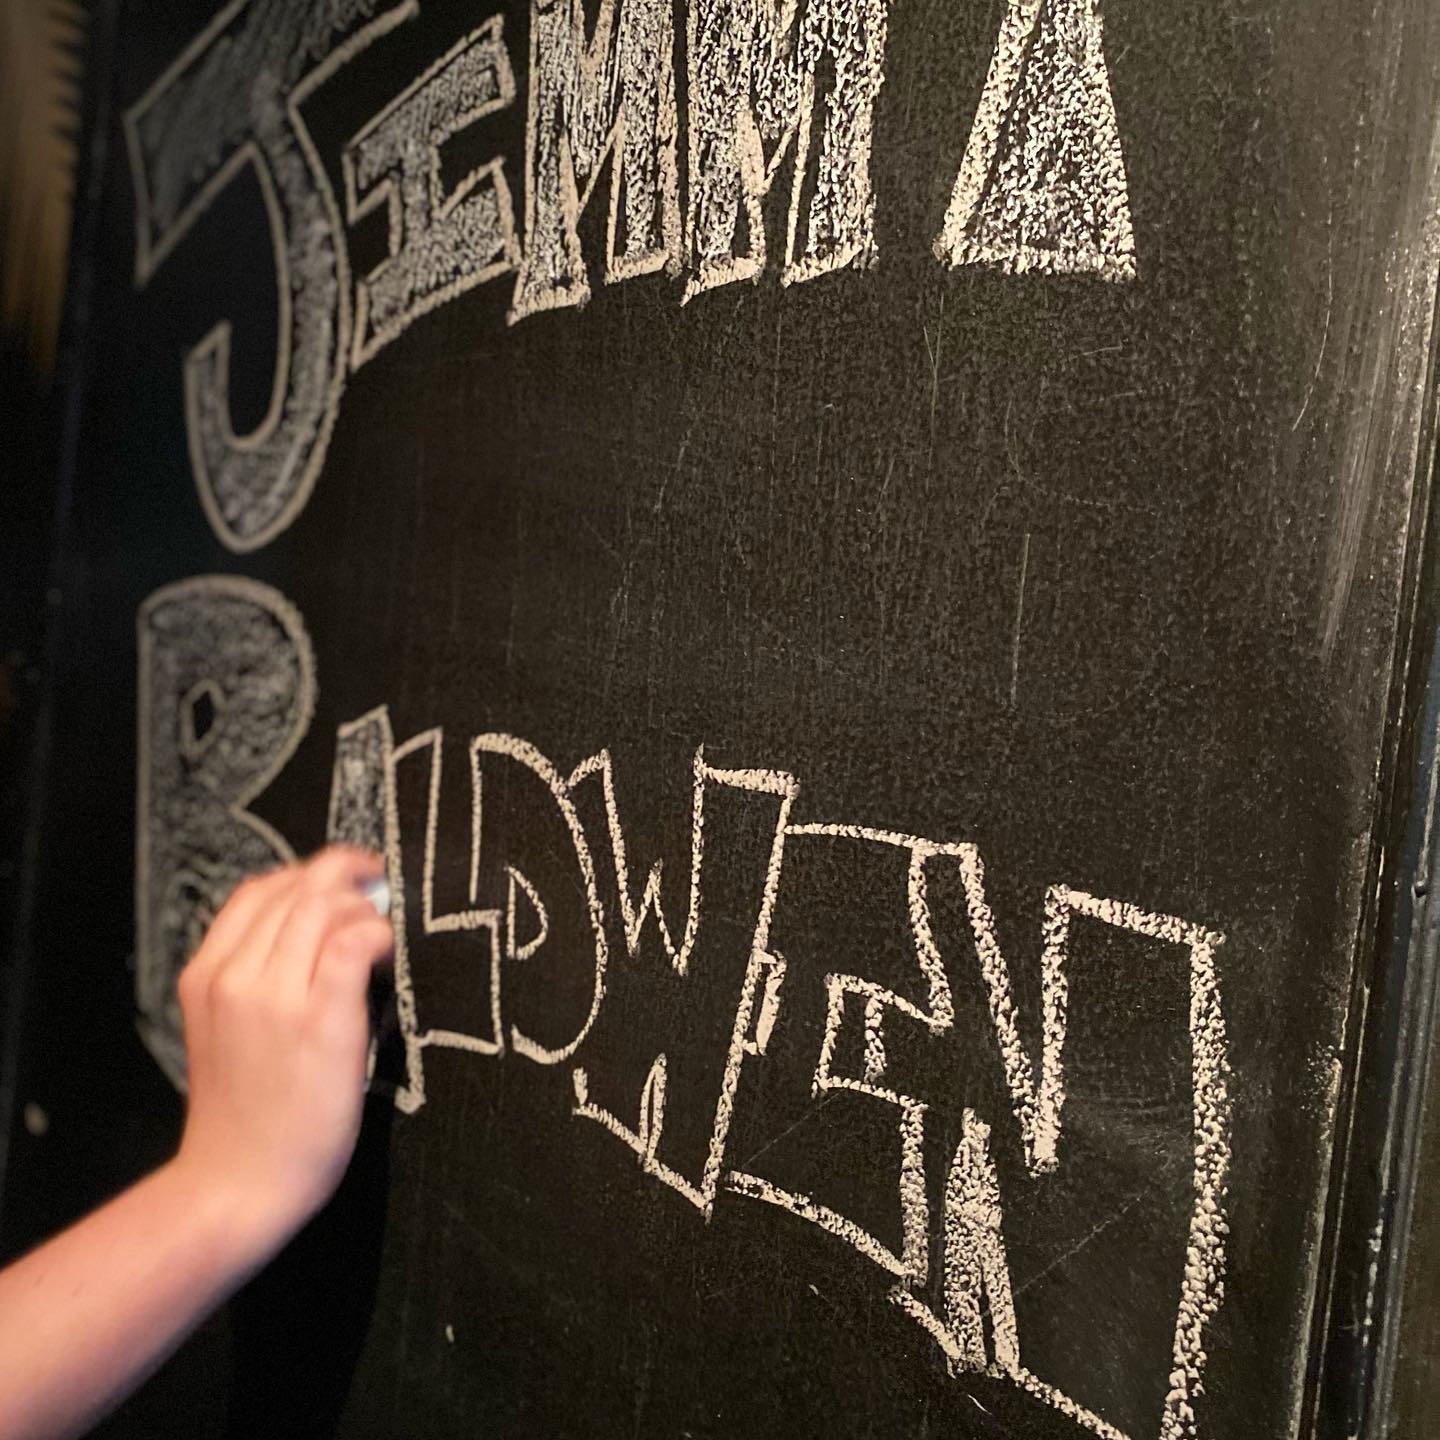 JIMMY
BALDWIN